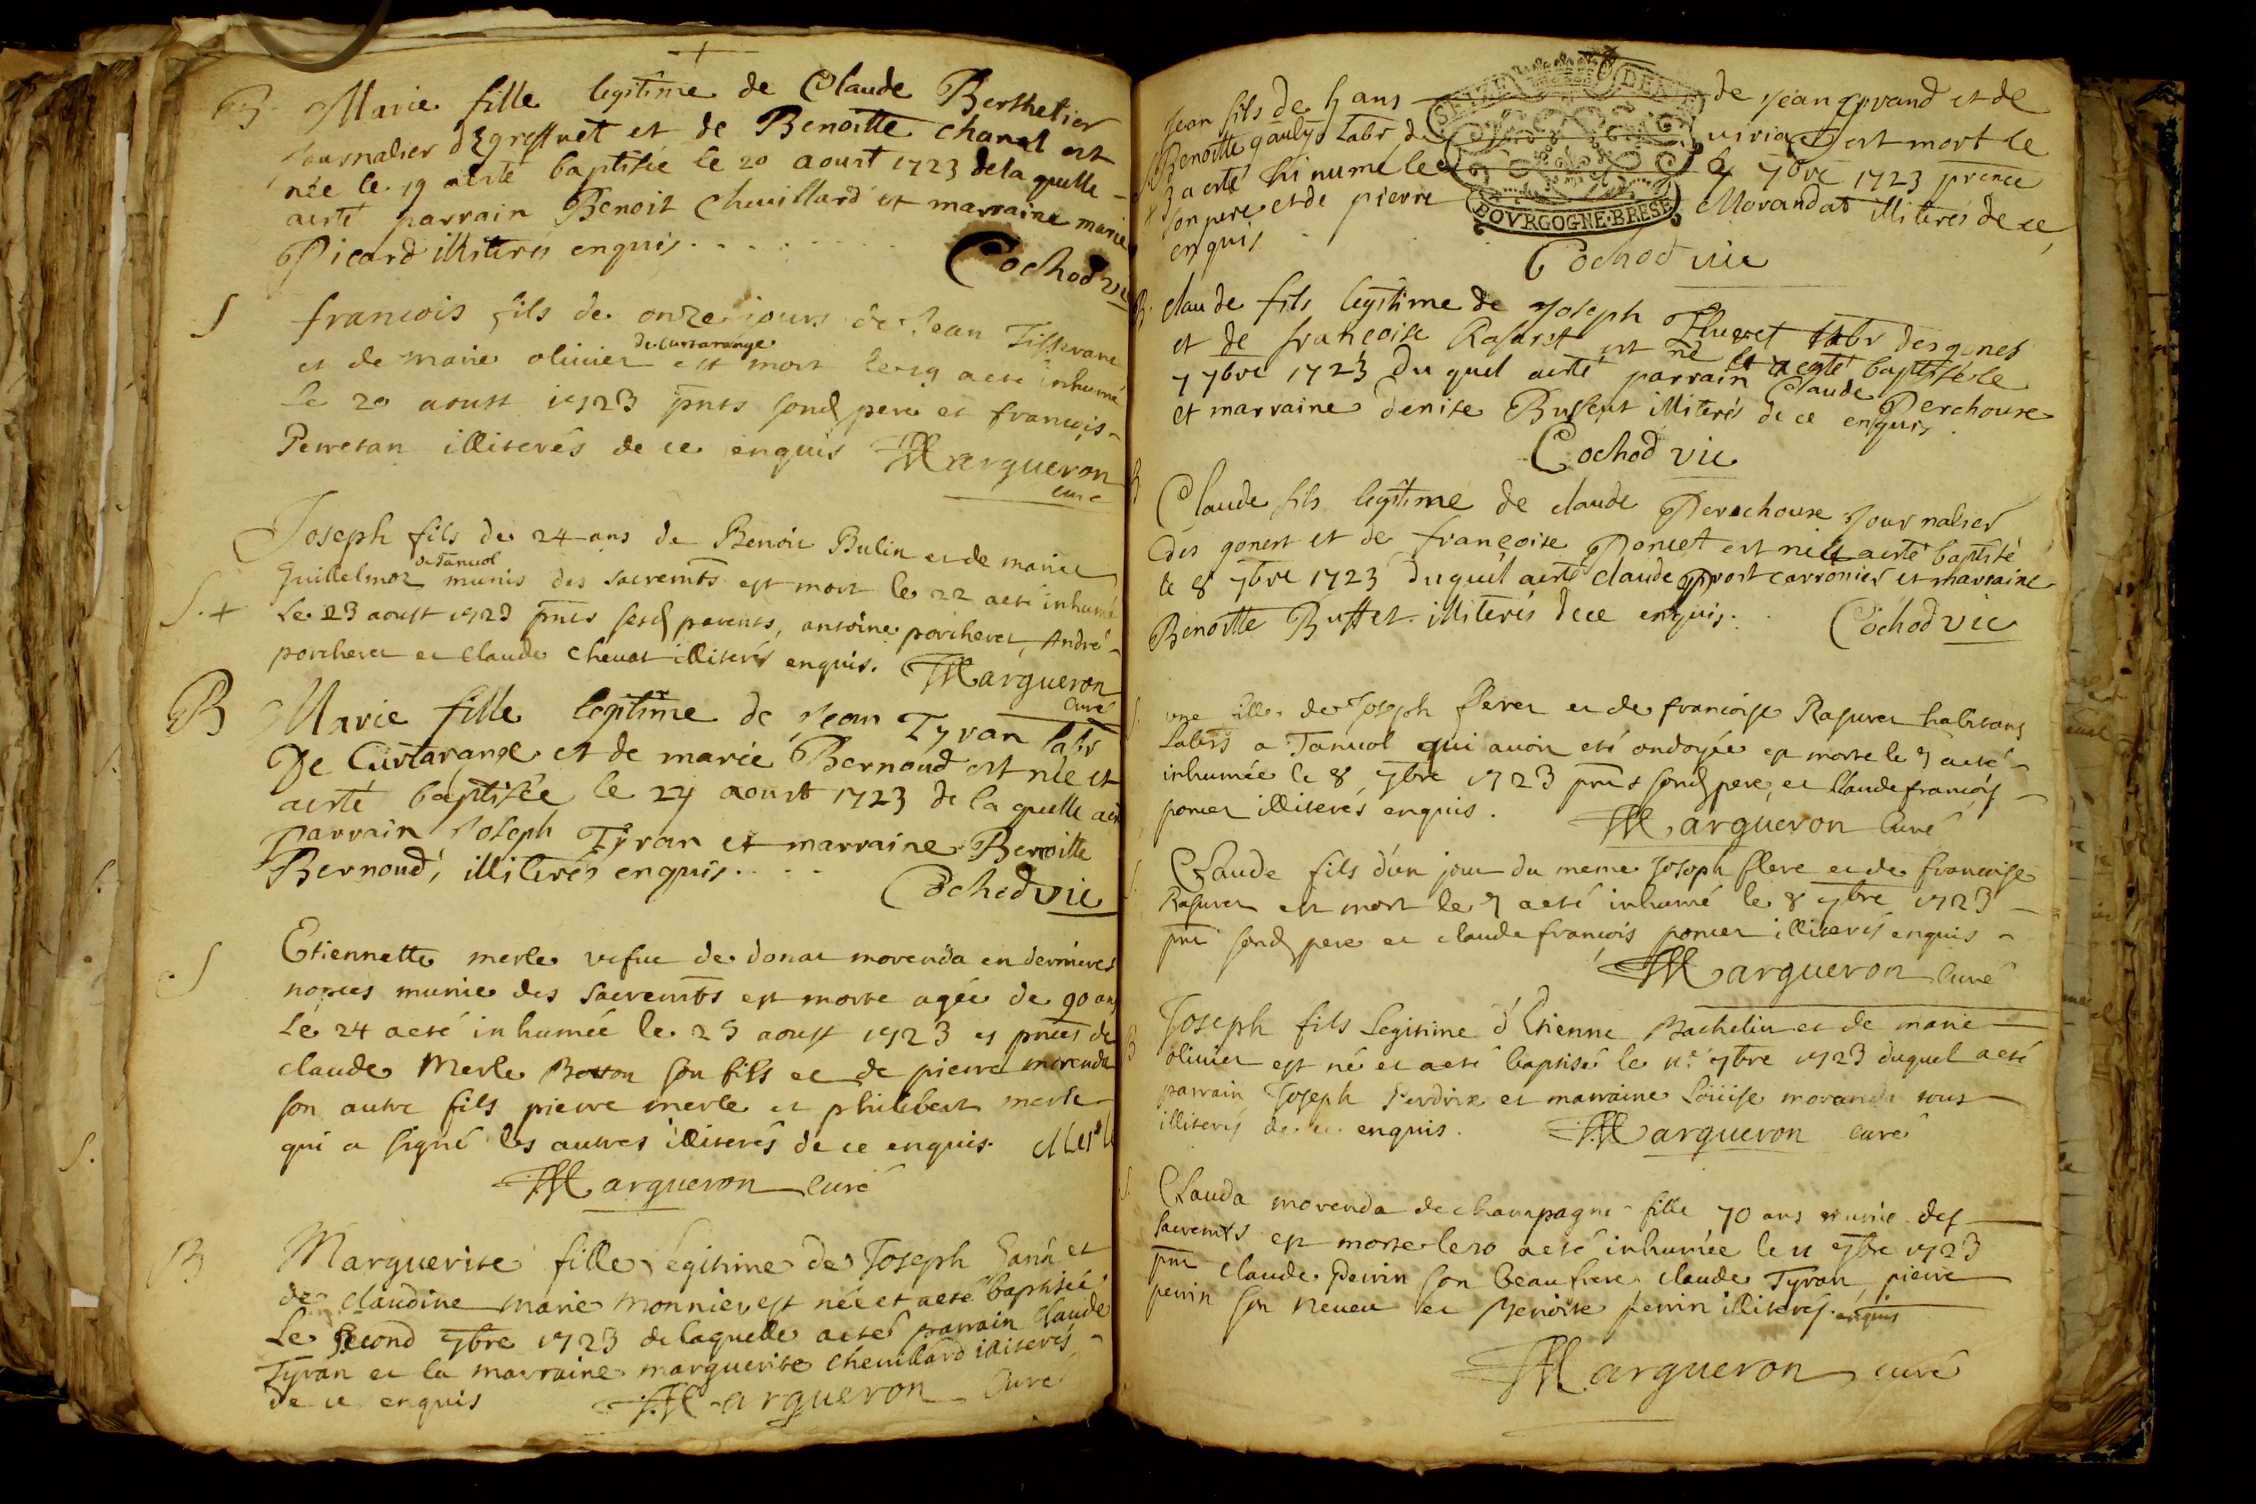 B. Marie fille legitime de Claude Berthelier
journalier d'Egreffuet et de Benoitte chanel est
née le 19 aesté baptisée le 20 aoust 1723 de la quelle
aesté parrain Benoit Chevillard et marraine marie
Picard illiteres enquis
Cochod vic
S francois fils de onze jours de Jean Tisserane
de curtarange
et de marie olivier est mort le 19 aeté inhumé
le 20 aoust 1723 pnts sond pere et francois
Perretan illiterés de ce enquis Margueron
curé
Joseph fils de 24 ans de Benoit Bulin et de marie
de Tanuol
S. + Guillelmot munis des sacremts est mort le 22 aeté inhumé
le 23 aoust 1723 pnts sesd parents, antoine porcheret, André
porcheret et claude chevat illiterés enquis. Margueron
curé
B Marie fille legitime de Jean Tyran labr
De Curtarange et de marie Bernoud est née et
aesté baptisée le 24 aoust 1723 de la quelle aesté
parrain Joseph Tyran et marraine Benoitte
Bernoud, illiterés enquis
Cochod vic
S Etiennette merle vefue de donat morenda en dernieres
nopces munie des sacremts est morte agée de 90 ans
Le 24 aeté inhumée le 25 aoust 1723 es pntes de
claude Merle son fils et de pierre morenda
son autre fils pierre merle et philibert merle
qui a signé les autres illiterés de ce enquis. Merle
Margueron curé
B Marguerite fille legitime de Joseph et
de claudine marie monnier est née et aeté baptisée
Le second 7bre 1723 de laquelle aeté parrain Claude
Tyran et la marraine marguerite chevillard illiterés
de ce enquis Margueron Curé
SEIZE DEN
BOVRGOGNE·BRESE
Jean fils de 5 ans de Jean grand et de
Benoitte labr d uiria est mort le
3 aesté hinumé le 4 7bre 1723 prence
son pere et de pierre Morandat illiterés de ce
enquis
Cochod vic
B. claude fils legitime de Joseph Flueret labr des gones
et de françoise Rasurel est né et aesté baptisé le
7 7bre 1723 du quel aesté parrain Claude Perchoux
et marraine denise Buffet illiterés de ce enquis
Cochod vic
B Claude fils legitime de claude Perachoux journalier
des gones et de françoise Poncet est né et aesté baptisé
le 8 7bre 1723 duquel aesté claude prost carronier et marraine
Benoitte Buffet illiterés de ce enquis.
Cochod vic
S. une fille de Joseph flerer et de francoise Rasurer habitans
Labrs a Tanuol qui avoit eté ondoyée est morte le 7 aeté
inhumée le 8 7bre 1723 pnt sond pere, et Claude francois
poncet illiterés enquis.
Margueron Curé
S. Claude fils d'un jour du meme Joseph flere et de francoise
Rasurer est mort le 7 aeté inhumé le 8 7bre 1723
pnt sond pere et claude francois poncet illiterés enquis
Margueron Curé
B Joseph fils Legitime d'Etienne Bachelin et de marie
olivier est né et aeté baptisé le 11e 7bre 1723 duquel aeté
parrain Joseph Perdrix et marraine Loüise moranda tous
illiterés de ce enquis.
Margueron curé
S. Clauda morenda de champagne fille 70 ans munie des
sacremts est morte le 10 aeté inhumée le 11 7bre 1723
pnt claude Perrin son beaufrere claude Tyran, pierre
perrin son neveu et Benoite perrin illiterés enquis
Margueron curé